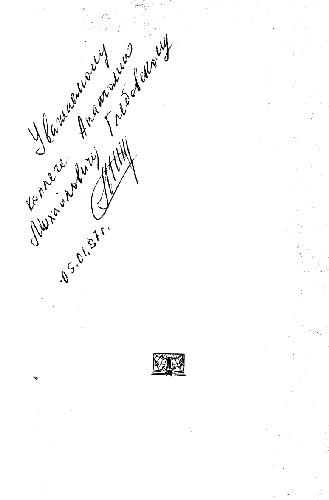 Уважаемому
коллеге Анатолию
Михайловичу Глебовскому
05.01.97г.